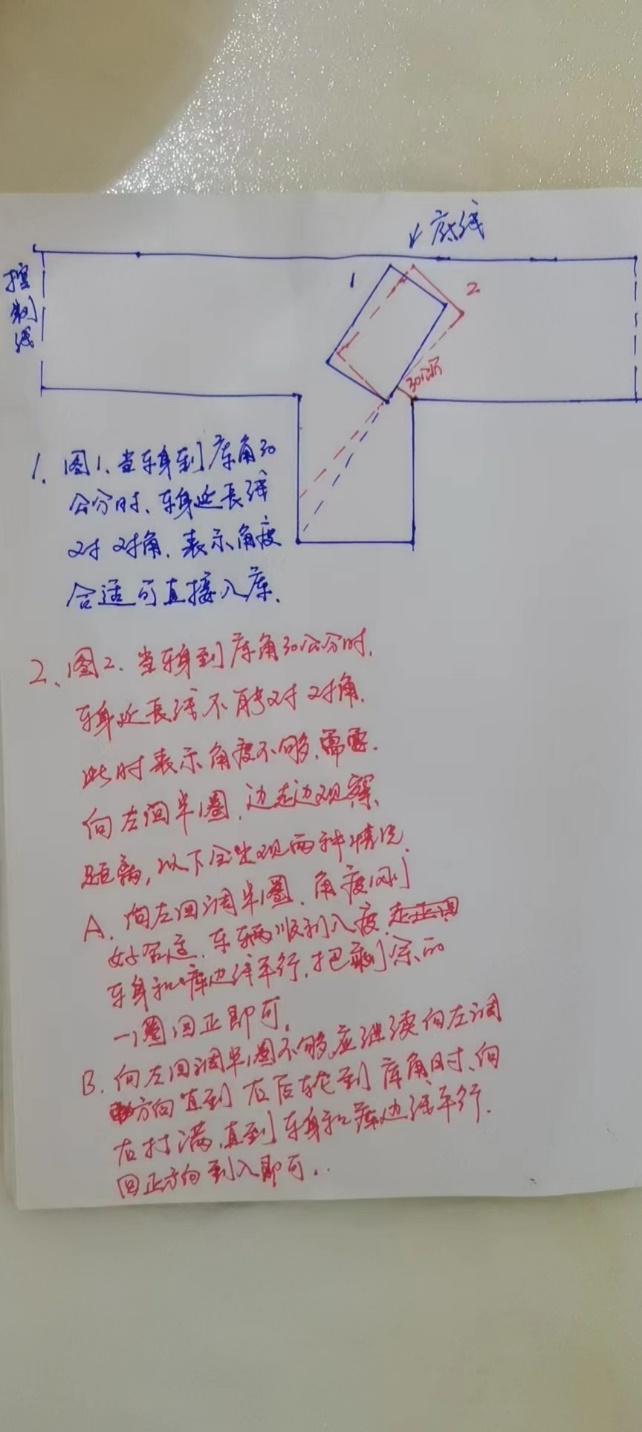 ↙底线
控制线
1
2
30公分
1、图1、当车身到库角30
公分时、车身延长线
对对角、表示角度
合适可直接入库.
2、图2、当车身到库角30公分时,
车身延长线不能对对角.
此时表示角度不够、需要.
向左回半圈,边走边观察、
距离,以下会出现两种情况.
A、向左回调半圈、角度刚
好合适、车辆顺利入库.
车身和库边线平行,把剩余的
一圈回正即可.
B、向左回调半圈不够、应继续向左调
方向直到右后轮到库角时、向
右打满,直到车身和库边线平行.
回正方向到入即可..